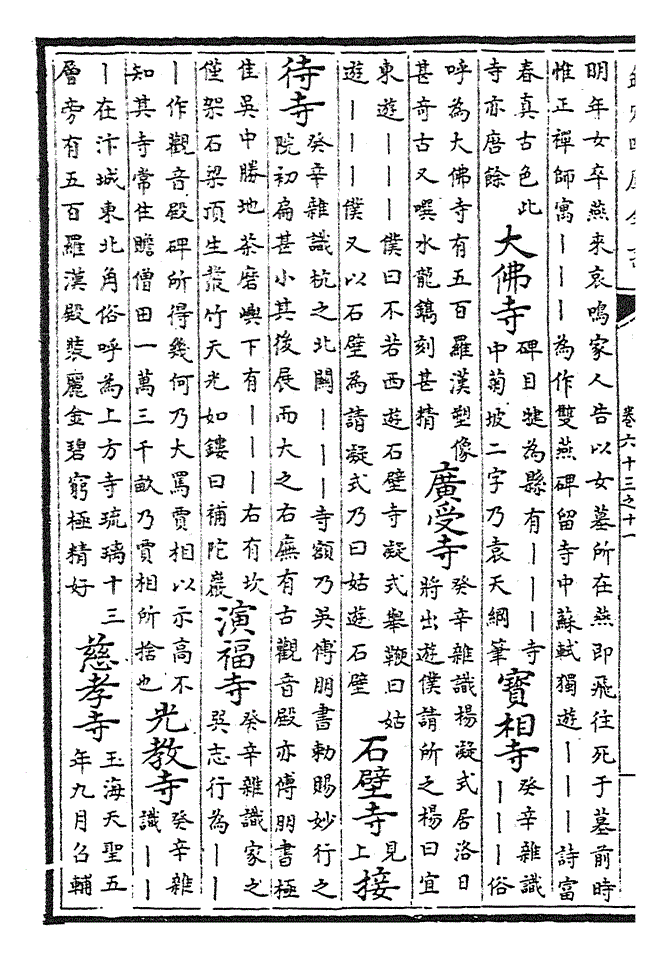 卷六十三之十一
明年女卒燕來哀鳴家人告以女墓所在燕即飛往死于墓前時
惟正禪師寓丨丨丨為作雙燕碑留寺中蘇軾獨遊丨丨丨詩富
春真古色此
寺亦磨餘
大佛寺
碑目犍為縣有丨丨丨寺
中菊坡二字乃袁天綱筆
寶相寺
癸辛雜識
丨丨丨俗
呼為大佛寺有五百羅漢塑像
甚奇古又噀水龍鐫刻甚精
廣受寺
癸辛雜識楊凝式居洛日
將出遊僕請所之楊曰宜
東遊丨丨丨僕曰不若西遊石壁寺凝式舉鞭曰姑
遊丨丨丨僕又以石壁為請凝式乃曰姑遊石壁
石壁寺
見
上
接
待寺
癸辛雜識杭之北闗丨丨丨寺額乃吳傅朋書勅賜妙行之
院初扁甚小其後展而大之右廡有古觀音殿亦傅朋書極
佳吳中勝地茶磨嶼下有丨丨丨右有坎
僅架石梁頂生叢竹天光如鏤曰補陀巖
演福寺
癸辛雜識家之
巽志行為丨丨
丨作觀音殿碑所得幾何乃大罵賈相以示高不
知其寺常住贍僧田一萬三千畝乃賈相所捨也
光教寺
癸辛雜
識丨丨
丨在汴城東北角俗呼為上方寺琉璃十三
層旁有五百羅漢殿裝麗金碧窮極精好
慈孝寺
玉海天聖五
年九月召輔